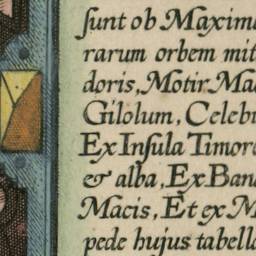 ſunt ob Maxim
rarum orbem mit
doris, Motir. Ma
Gilolum, Celeb
Ex Inſula Timor
& alba, Ex Ban
Macis, Et ex M
pede hujus tabell